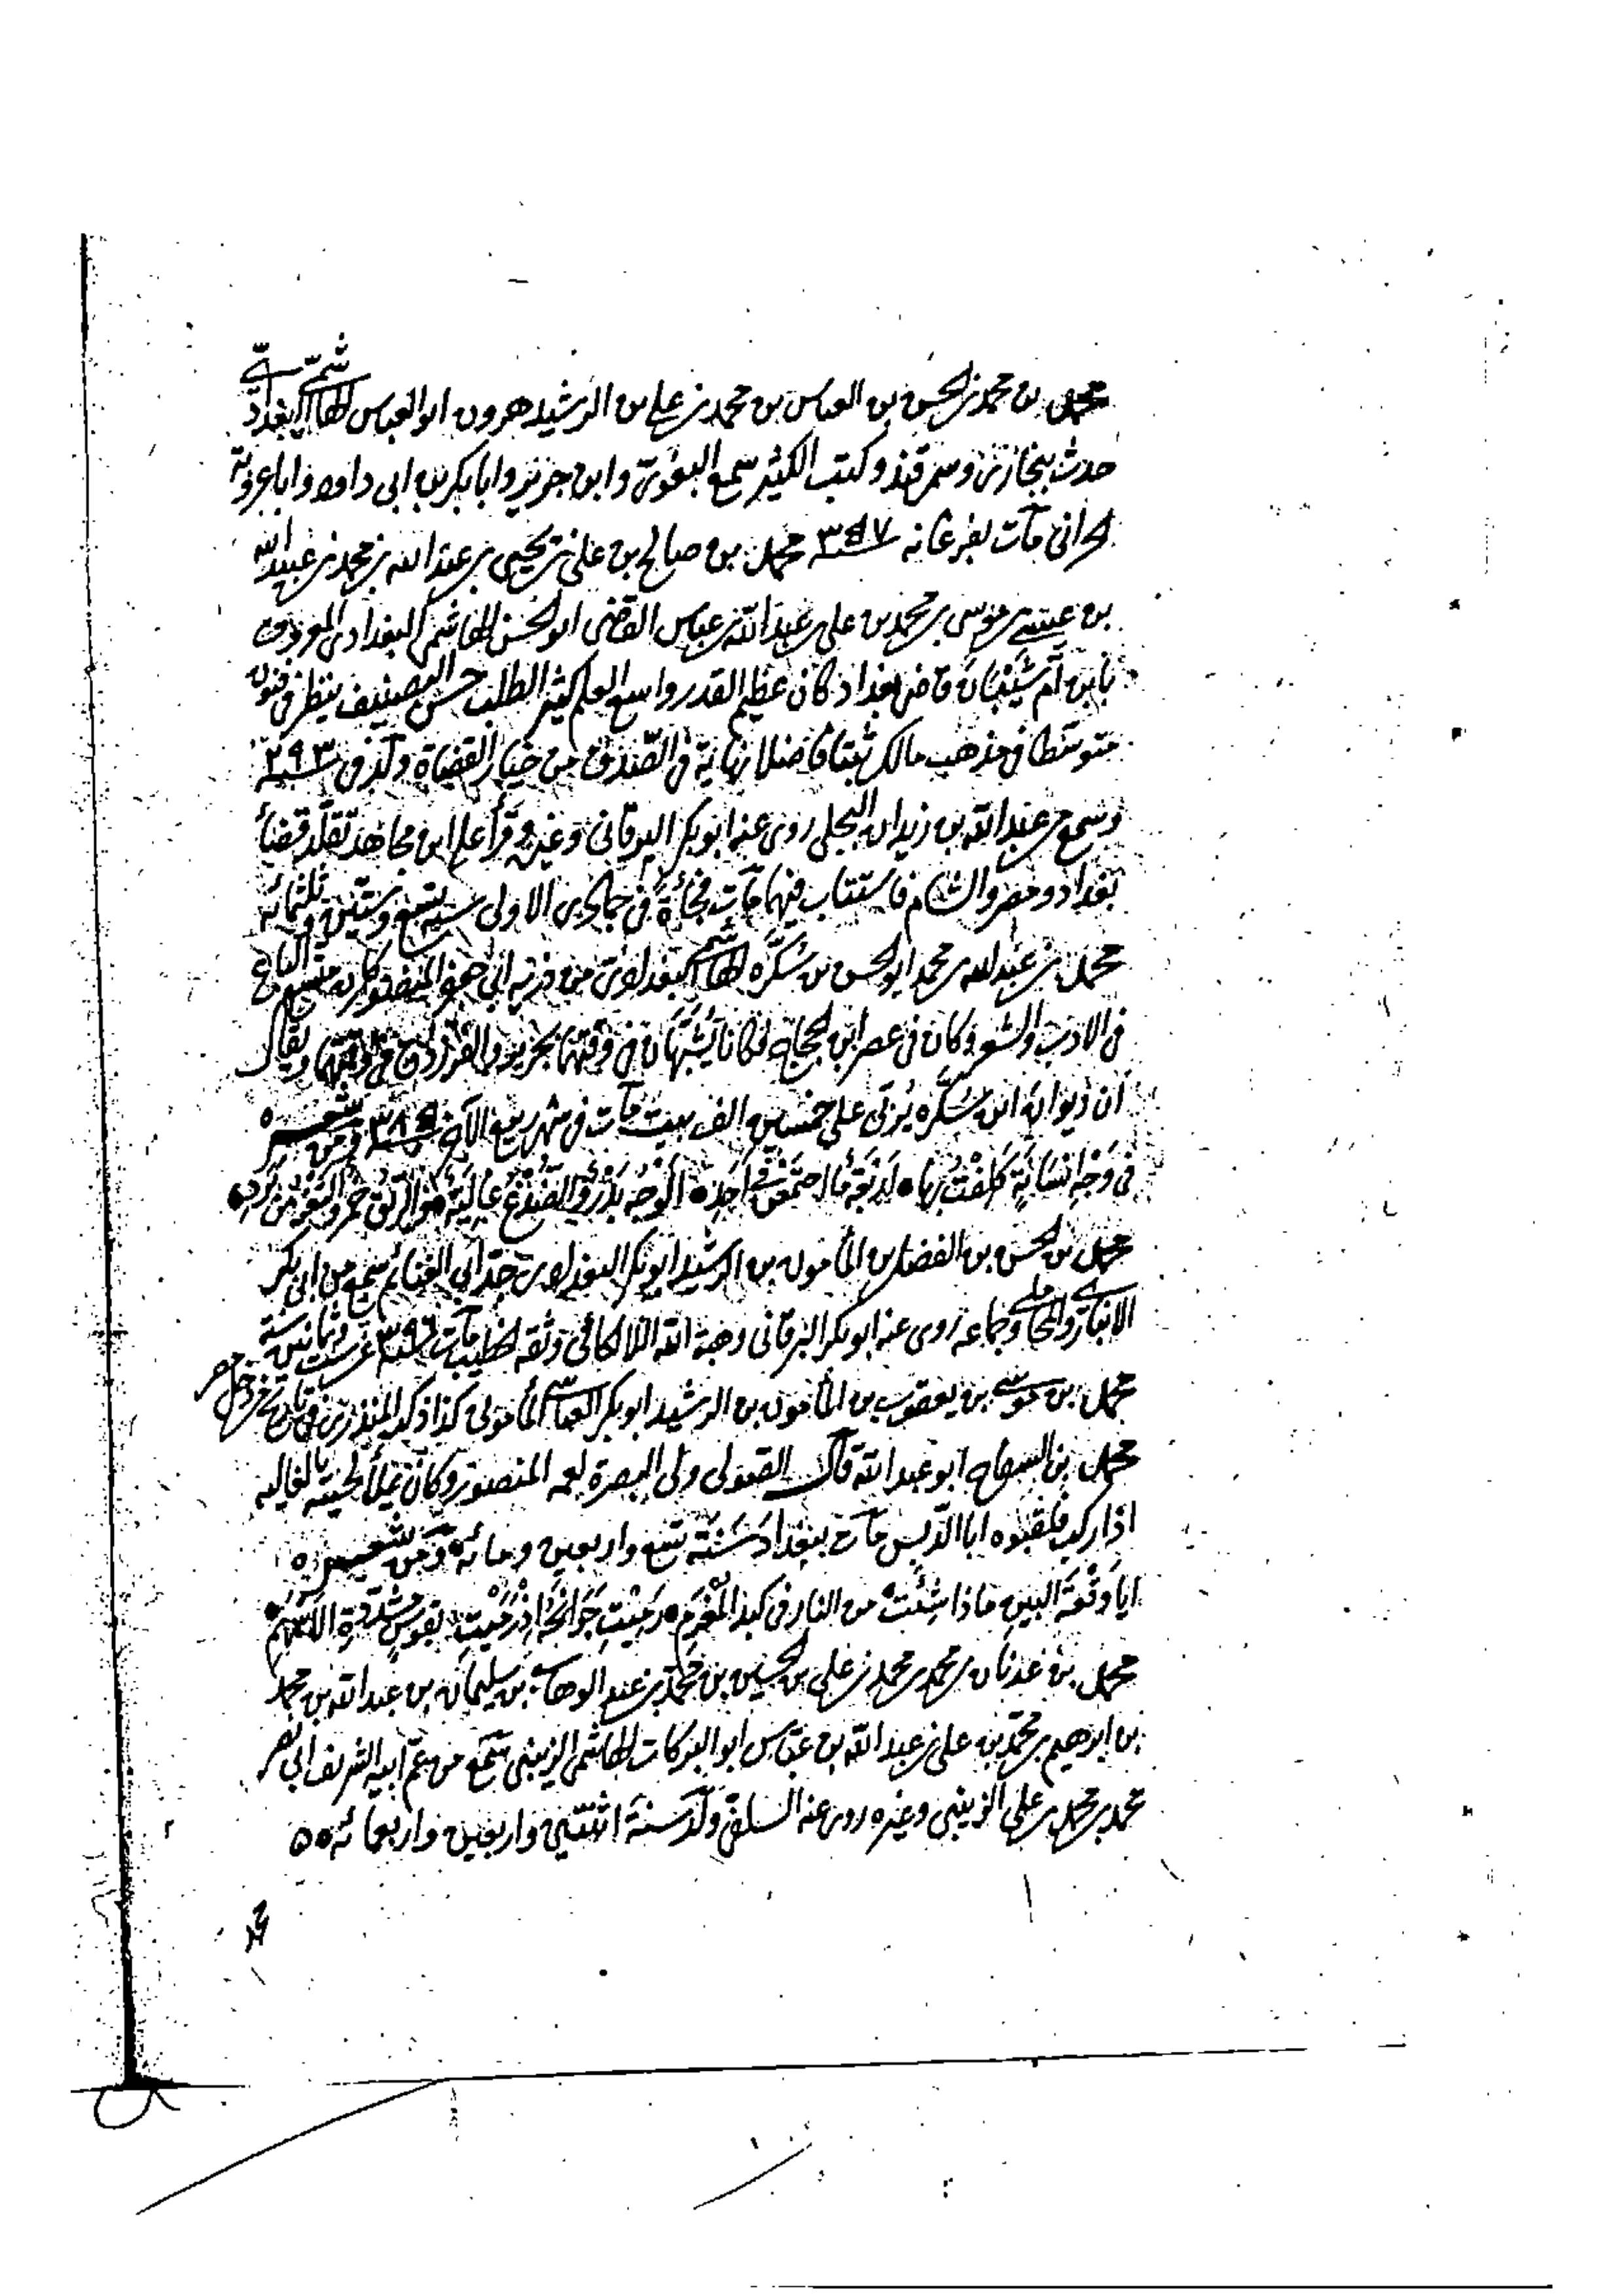 محمد بن محمد بن الحسن بن العباس بن محمد بن علي بن الرشيد هرون ابو العباس الهاشمي البغدادي
حدث ببخارى وسمرقند وكتب الكثير سمع البغوي وابن جرير وابا بكر بن ابي داود وابا عروبة
الحراني مات بفرغانه سنه محمد بن صالح بن علي بن يحيى بن عبد الله بن محمد بن عبيد الله
بن عيسى بن موسى بن محمد بن علي بن عبد الله بن عباس القاضي ابو الحسن الهاشمي البغدادي المعروف
بابن ام شيبان قاضي بغداد كان عظيم القدر واسع العلم كثير الطلب حسن التصنيف ينظر في فنون
متوسطا في مذهب مالك ثبتا فاضلا نهاية في الصدق من خيار القضاة ولد في سنة ٢٩٣
وسمع من عبد الله بن زيدان البجلي روى عنه ابو بكر البرقاني وغيره وقرأ على ابن مجاهد تقلد قضاء
بغداد ومصر والشام فاستناب فيها مات فجأة في جمادى الاولى سنة تسع وستين وثلثمائة
محمد بن عبد الله بن محمد ابو الحسن بن سكره الهاشمي البغدادي من ذرية ابي جعفر المنصور كان متسع الباع
في الادب والشعر وكان في عصر ابن الحجاج فكانا يشبهان في وقتهما بجرير والفرزدق في وقتهما ويقال
ان ديوان ابن سكره يربى على خمسين الف بيت مات في شهر ربيع الآخر سنة ٣٨٥ ومن شعره
في وجه انسانة كلفت بها ٥ اربعة ما اجتمعن في احد ٥ الوجه بدر والصدغ غالية ٥ والريق خمر والثغر من برد
محمد بن الحسن بن الفضل بن المأمون بن الرشيد ابو بكر البغدادي جد ابي الغنائم سمع من ابي بكر
الانباري والمحاملي وجماعه روى عنه ابو بكر البرقاني وهبة الله اللالكائي وثقه الخطيب مات سنه ٣٩٦ عن ست وثمانين سنة
محمد بن موسى بن يعقوب بن المأمون بن الرشيد ابو بكر العباسي المأموني كذا ذكره المنذري في تاريخ من دخل مصر
محمد بن السفاح ابو عبد الله قال الصولي ولى البصرة لعمه المنصور وكان يملأ لحيته بالغاليه
اذا ركب فلقبوه ابا الدبس مات ببغداد سنة تسع واربعين ومائة ومن شعره
ايا وقعة البين ماذا شئت من النار في كبد المغرم ٥ رميت جوانحه اذ رميت بقوس مشددة الاسهم
محمد بن عدنان بن محمد بن محمد بن علي بن الحسين بن محمد بن عبد الوهاب بن سليمان بن عبد الله بن محمد
بن ابرهيم بن محمد بن علي بن عبد الله بن عباس ابو البركات الهاشمي الزينبي سمع من عم ابيه الشريف ابي نصر
محمد بن محمد بن علي الزينبي وغيره روى عنه السلفي ولد سنة اثنتين واربعين واربعمائة ٥٥
محمد